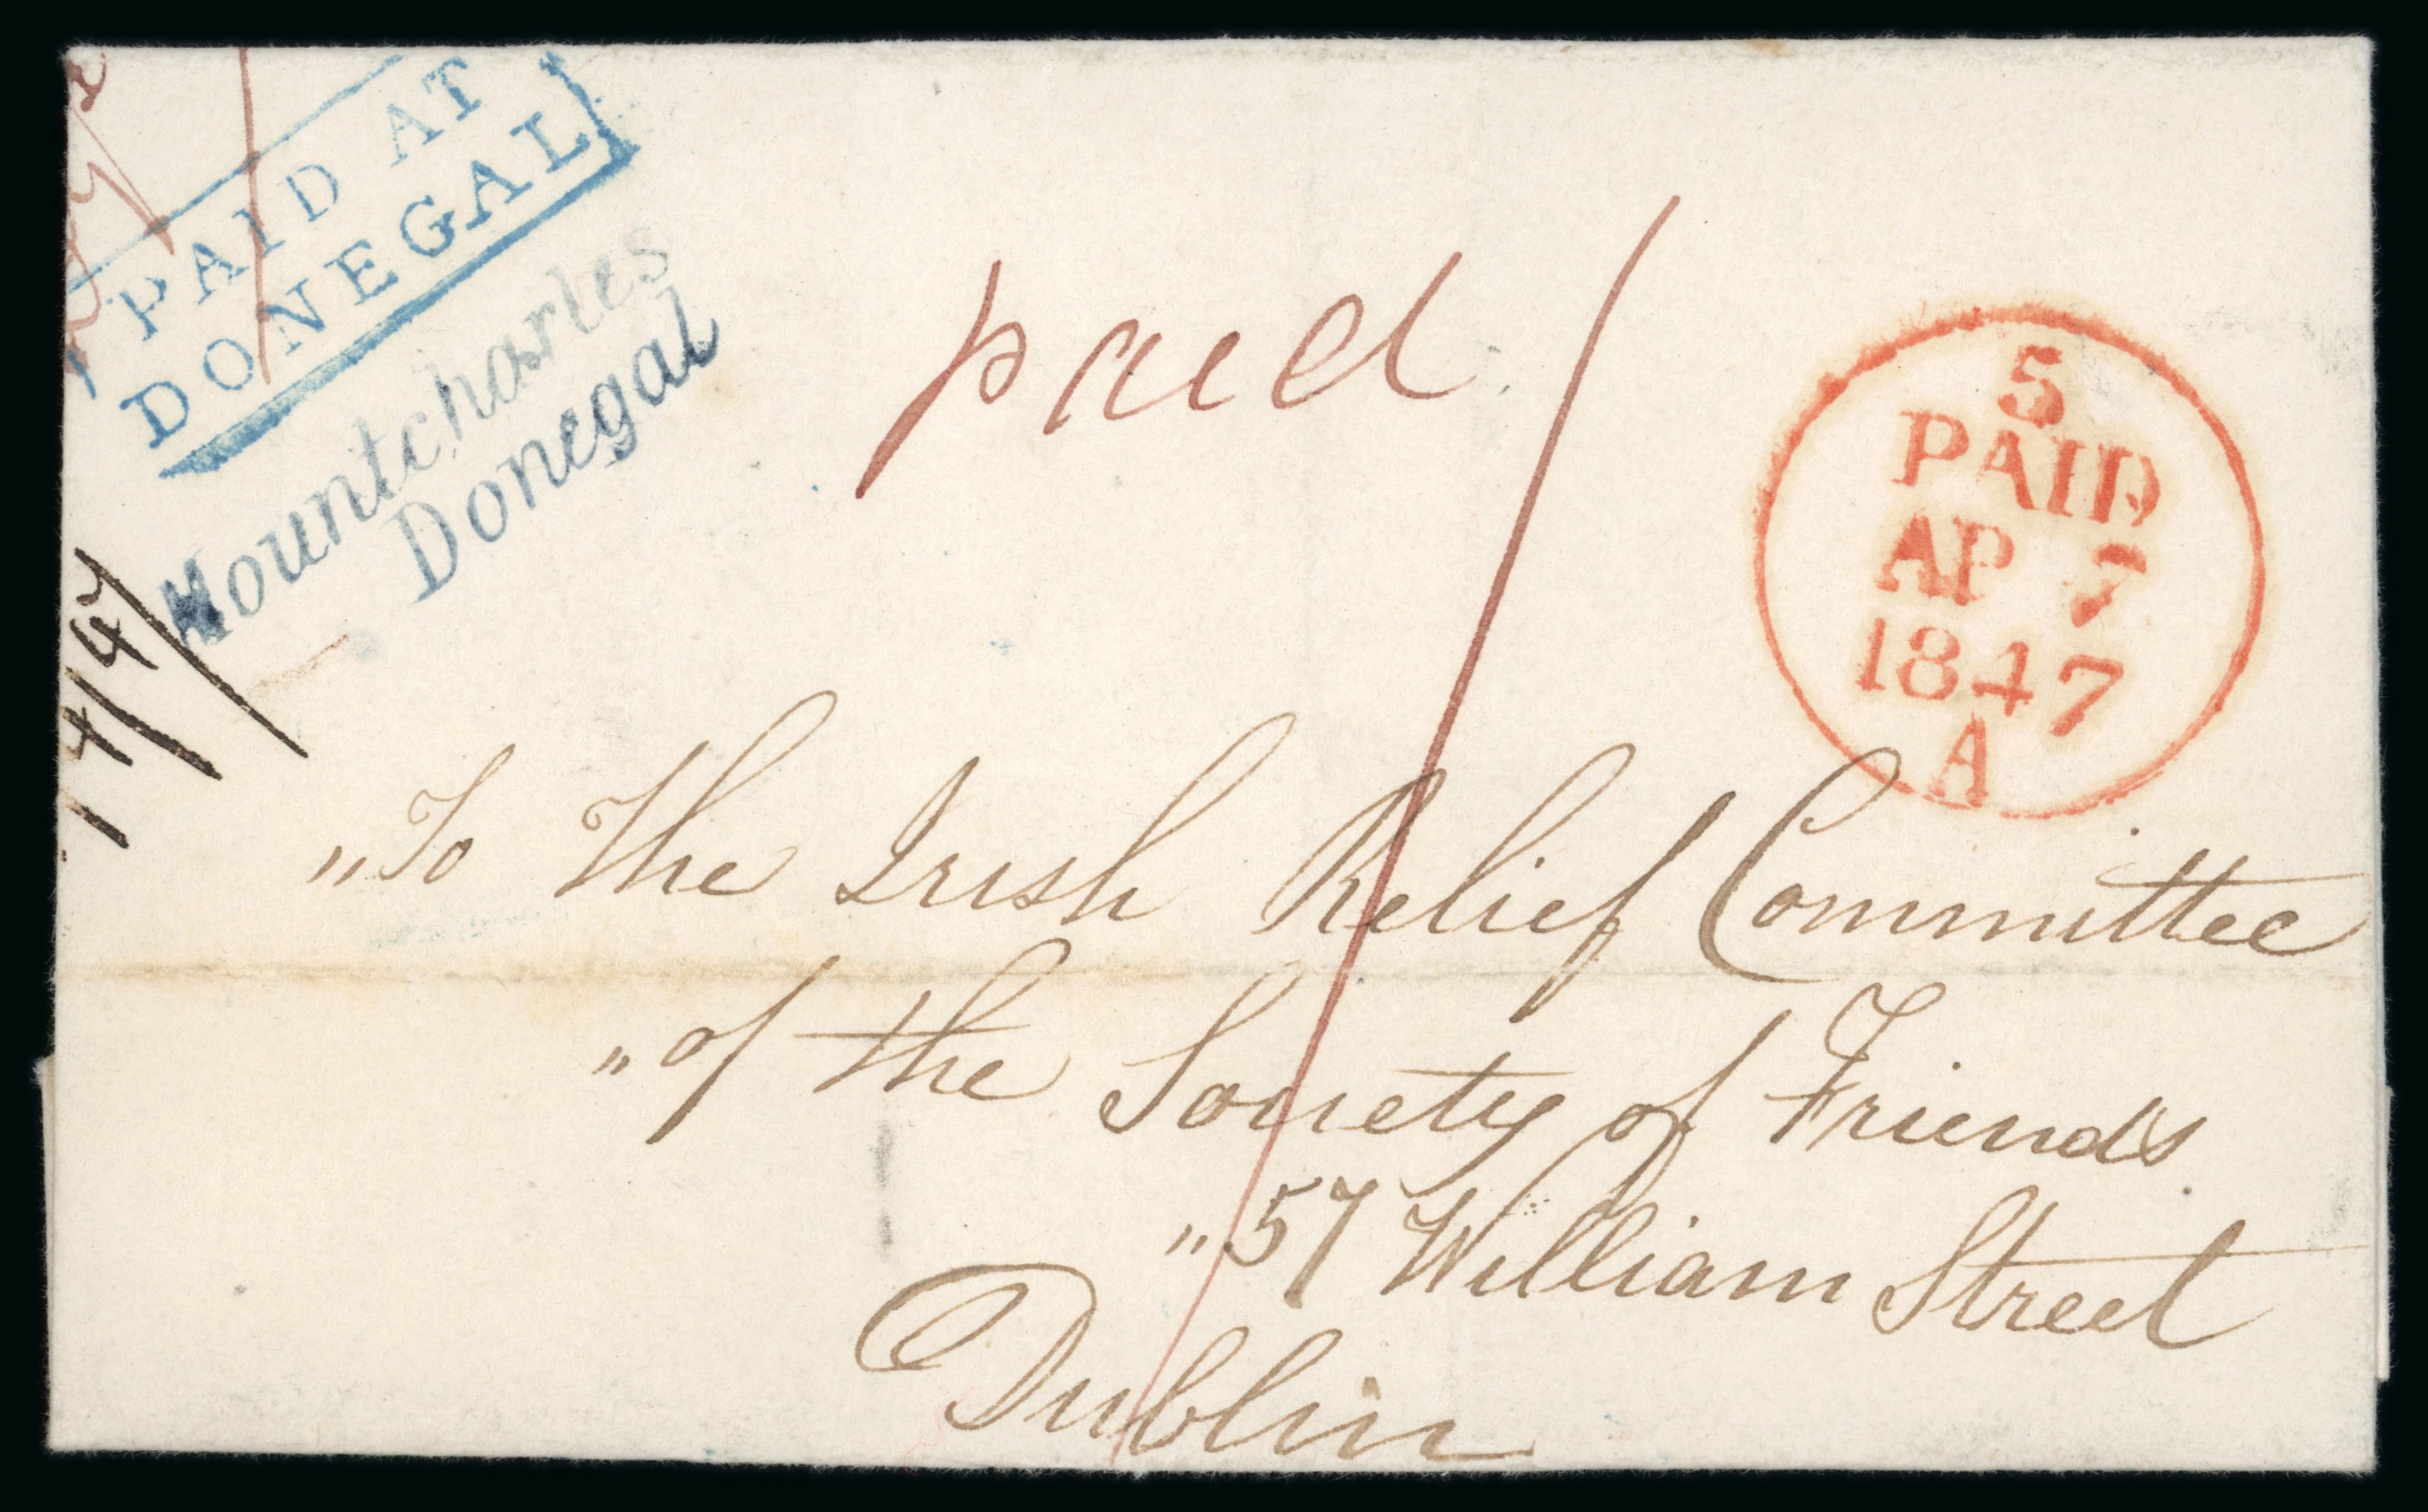 PAID AT
DONEGAL
Mountcharles
Donegal
paid 1
5
PAID
AP 7
1847
A
„To The Irish Relief Committee
„of the Society of Friends
„57 William Street
Dublin